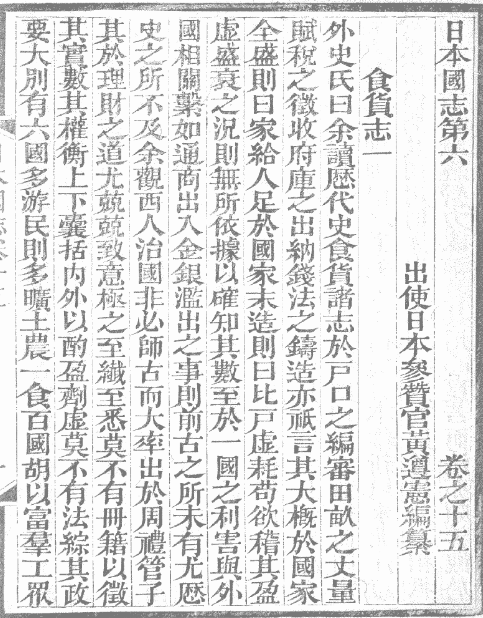 日本國志第六 卷之十五
出使日本參贊官黃遵憲編纂
食貨志一
外史氏曰余讀歷代史食貨諸志於戸口之編審田畝之丈量
賦稅之徵收府庫之出納錢法之鑄造亦祇言其大概於國家
全盛則曰家給人足於國家末造則曰比戸虛耗苟欲稽其盈
虛盛衰之況則無所依據以確知其數至於一國之利害與外
國相關繫如通商出入金銀濫出之事則前古之所未有尤歷
史之所不及余觀西人治國非必師古而大率出於周禮管子
其於理財之道尤兢兢致意極之至纖至悉莫不有冊籍以徵
其實數其權衡上下囊括內外以酌盈劑虛莫不有法綜其政
要大別有六國多游民則多曠土農一食百國胡以富羣工眾